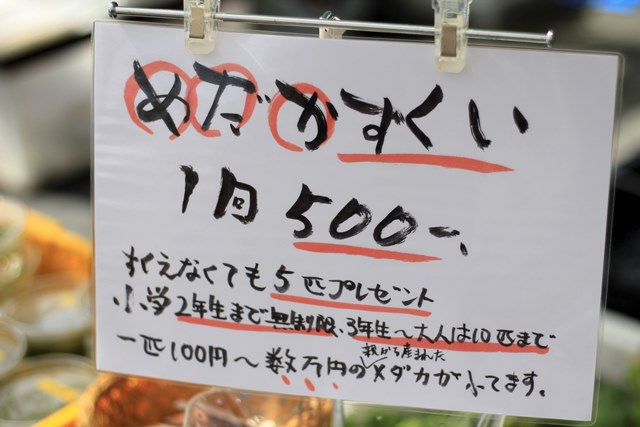 めだかすくい
1回500-、
すくえなくても5匹プレゼント
小学2年生まで無制限、3年生～大人は10匹まで
一匹100円～数万円の親から産まれたメダカが小てます。